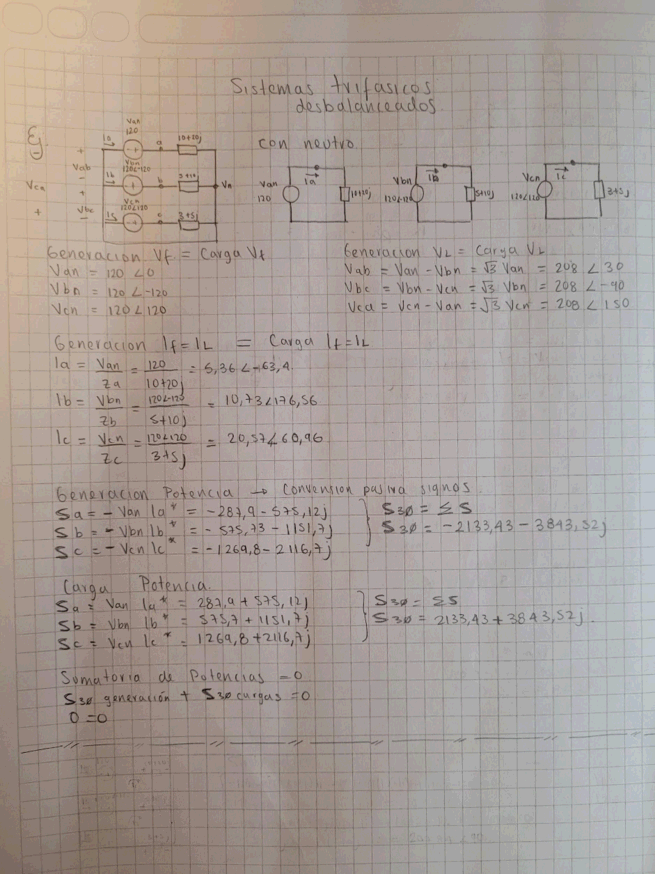 Sistemas trifasicos
desbalanceados.
Ej
con neutro
Van
120
Ia
a
10+20j
+
Vab
-
Vbn
120∠-120
Ib
b
5+10j
Vn
Vca
+
Vbc
-
Vcn
120∠120
Ic
c
3+5j
+
Van
120
Ia
10+20j
Vbn
120∠-120
Ib
5+10j
Vcn
120∠120
Ic
3+5j
Generación Vf = Carga Vf
Van = 120 ∠0
Vbn = 120 ∠-120
Vcn = 120 ∠120
Generacion VL = Carga VL
Vab = Van - Vbn = √3 Van = 208 ∠30
Vbc = Vbn - Vcn = √3 Vbn = 208 ∠-90
Vca = Vcn - Van = √3 Vcn = 208 ∠150
Generacion If = IL = Carga If = IL
Ia = Van/Za = 120/10+20j = 5,36 ∠-63,4.
Ib = Vbn/Zb = 120∠-120/5+10j = 10,73∠176,56
Ic = Vcn/Zc = 120∠120/3+5j = 20,57∠60,96
Generacion Potencia → Convension pasiva signos
Sa = - Van Ia* = -287,9 - 575,12j
Sb = - Vbn Ib* = - 575,73 - 1151,7j
Sc = - Vcn Ic* = -1269,8 - 2116,7j
S3Ø = ΣS
S3Ø = -2133,43 - 3843,52j
Carga Potencia.
Sa = Van Ia* = 287,9 + 575,12j
Sb = Vbn Ib* = 575,7 + 1151,7j
Sc = Vcn Ic* = 1269,8 + 2116,7j
S3Ø = ΣS
S3Ø = 2133,43 + 3843,52j.
Sumatoria de Potencias = 0
S3Ø generación + S3Ø cargas = 0
0 = 0